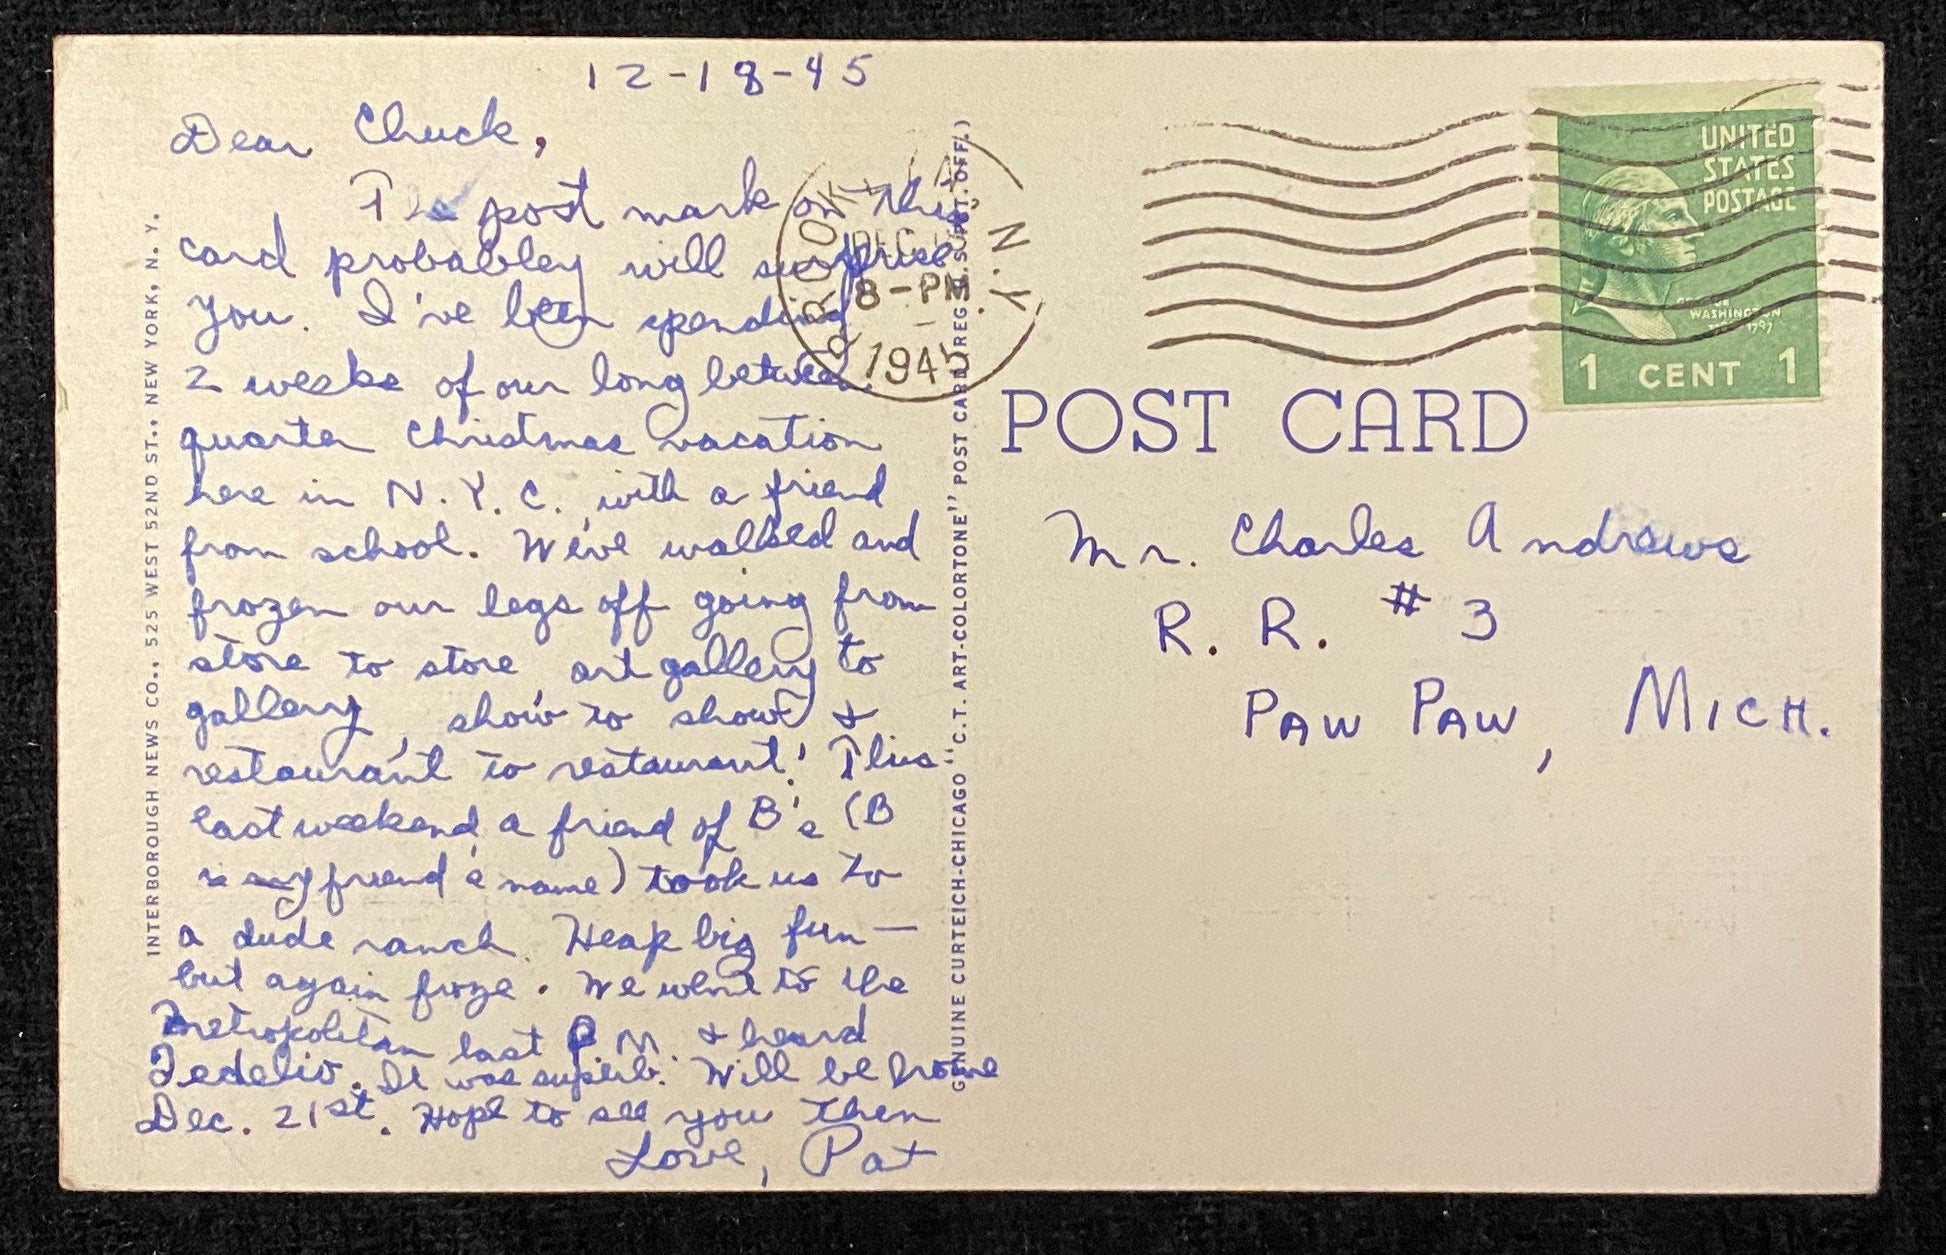 12-18-45
Dear Chuck,
The post mark on this
card probabley will surprise
you. I've been spending
2 weeks of our long between
quarter Christmas vacation
here in N.Y.C. with a friend
from school. We've walked and
frozen our legs off going from
store to store, art gallery to
gallery, show to show &
restaurant to restaurant! Plus
last weekend, a friend of B's (B
is my friend's name) took us to
a dude ranch. Heap big fun —
but again froze. We went to the
Metropolitan last P.M. & heard
Fedelio. It was superb. Will be home
Dec. 21st. Hope to see you then
Love, Pat
INTERBOROUGH NEWS CO., 525 WEST 52ND ST., NEW YORK, N. Y.
GENUINE CURTEICH-CHICAGO "C.T. ART-COLORTONE" POST CARD (REG. U.S. PAT. OFF.)
BROOKLYN
N.Y.
DEC
8-PM
1945
UNITED
STATES
POSTAGE
GEORGE
WASHINGTON
1 CENT 1
POST CARD
Mr. Charles Andrews
R. R. #3
PAW PAW, MICH.